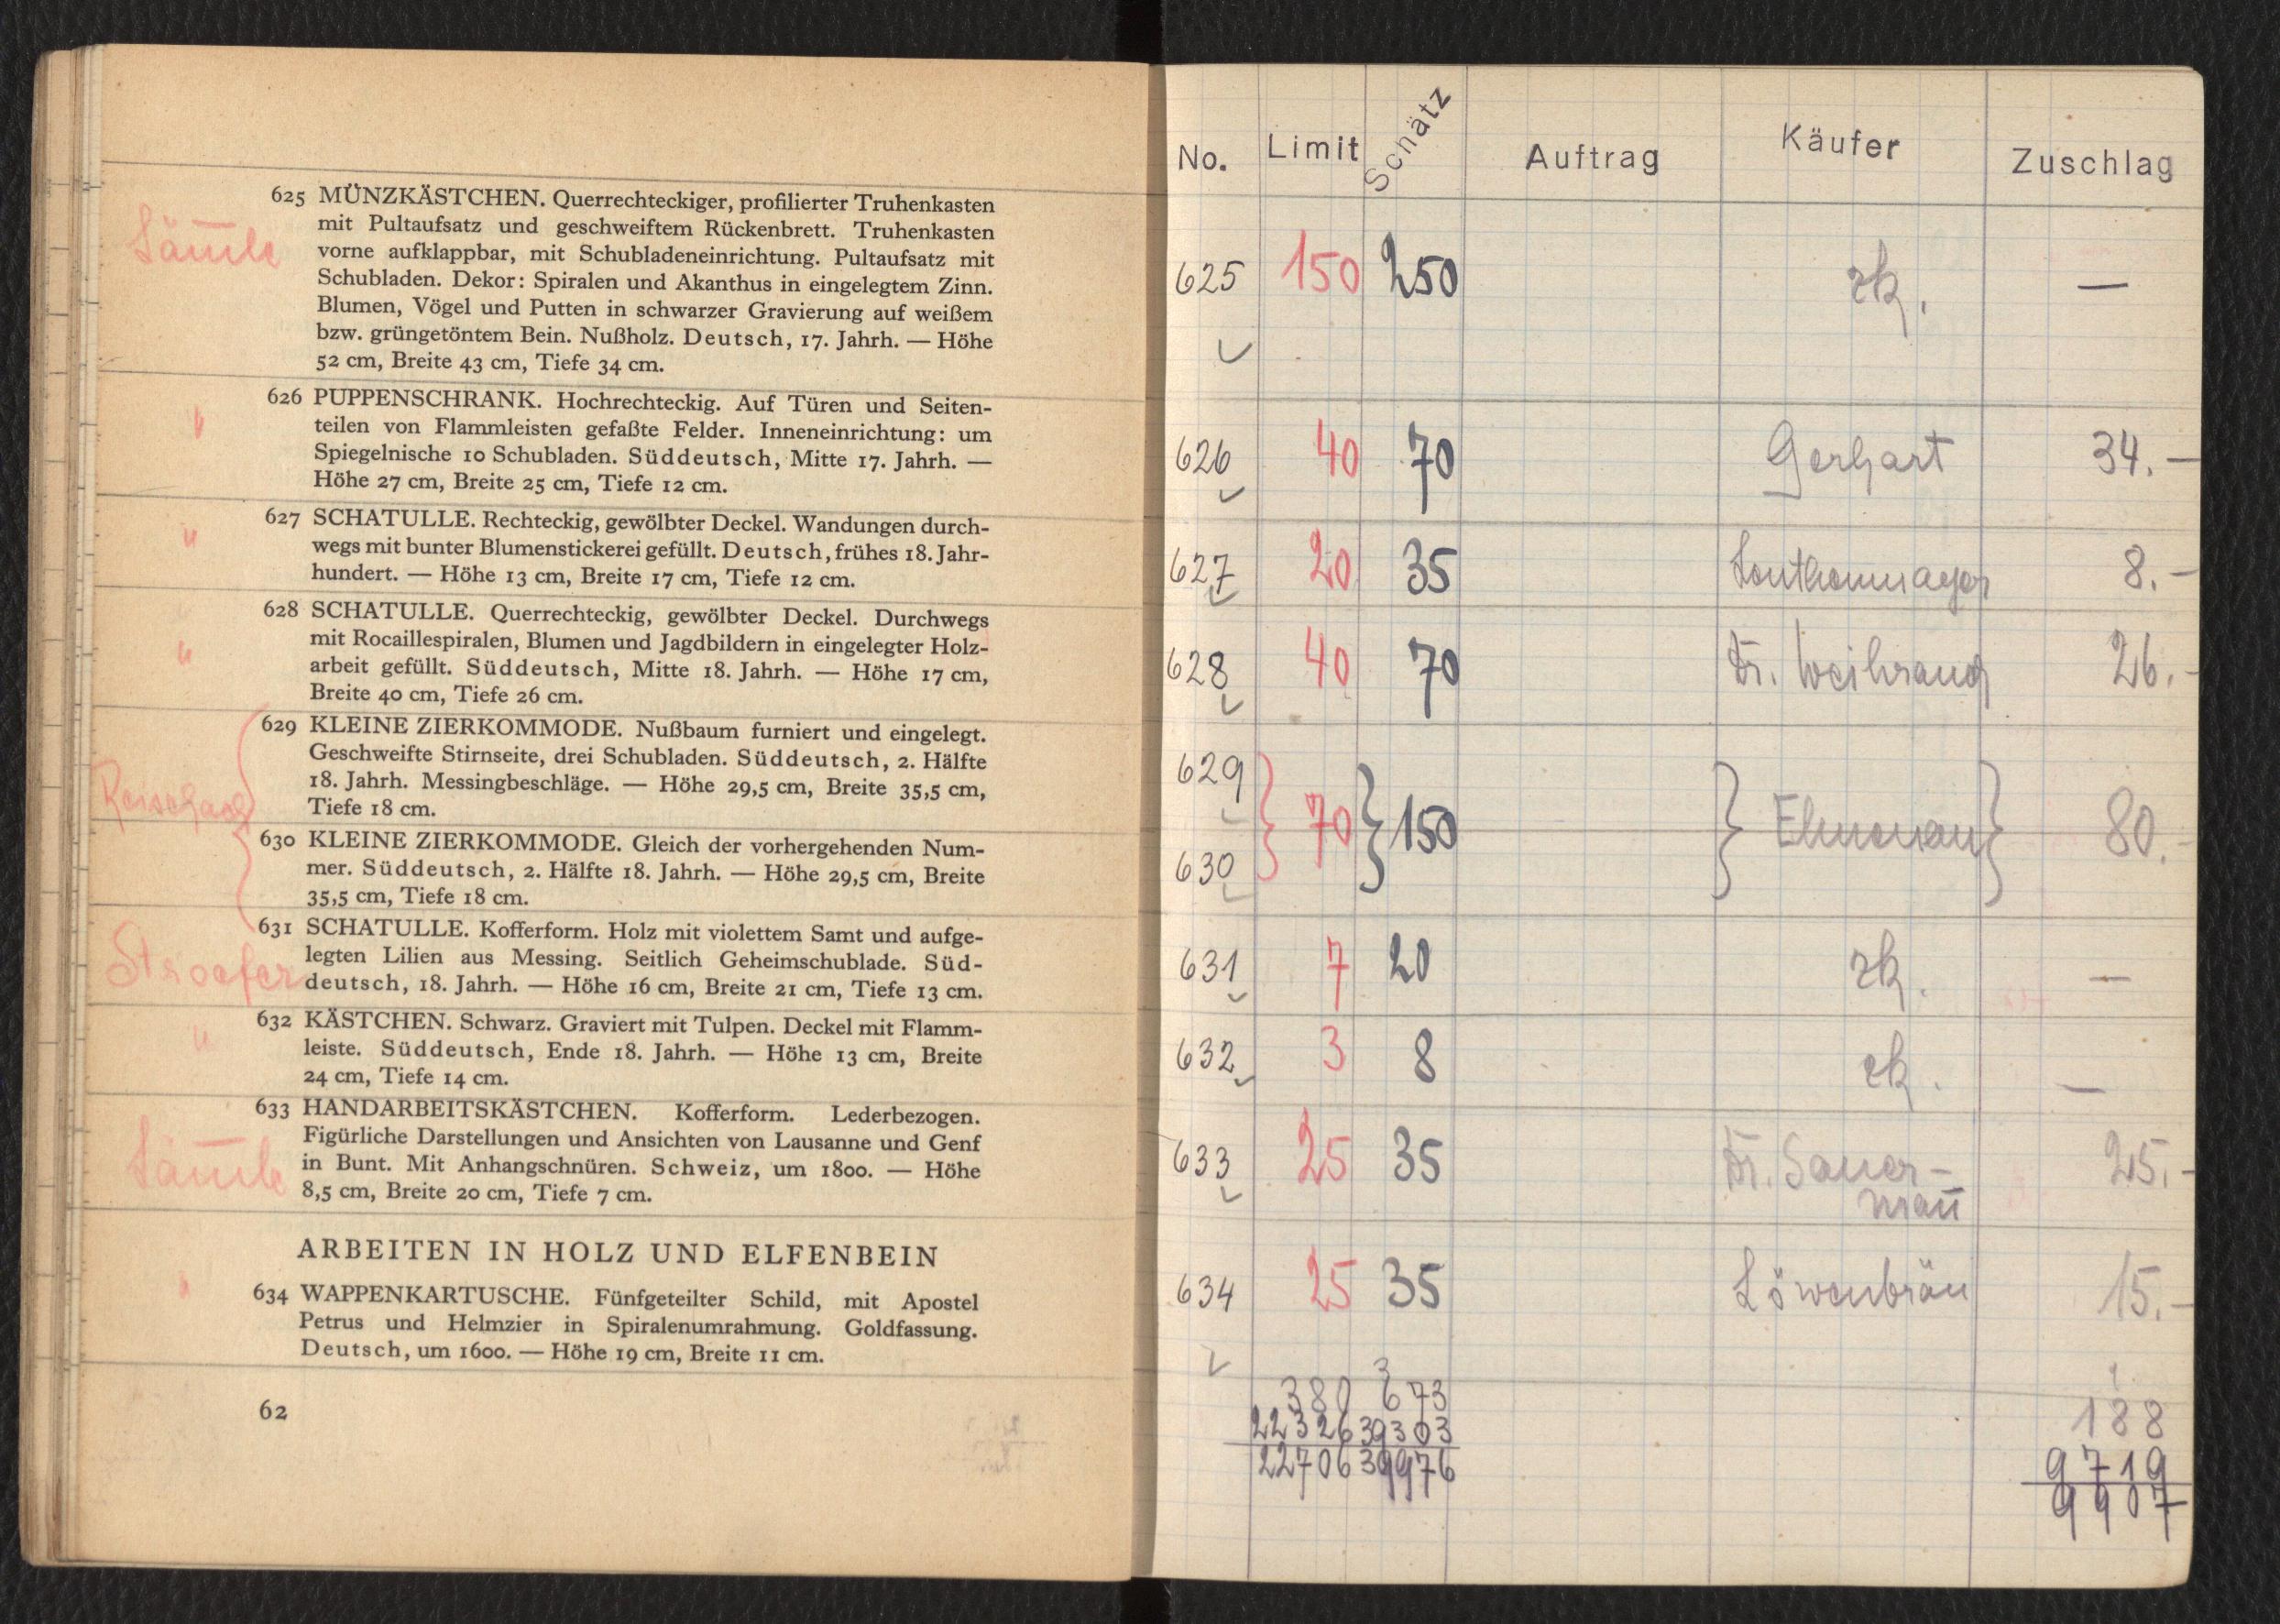 625 MÜNZKÄSTCHEN. Querrechteckiger, profilierter Truhenkasten
mit Pultaufsatz und geschweiftem Rückenbrett. Truhenkasten
vorne aufklappbar, mit Schubladeneinrichtung. Pultaufsatz mit
Schubladen. Dekor: Spiralen und Akanthus in eingelegtem Zinn.
Blumen, Vögel und Putten in schwarzer Gravierung auf weißem
bzw. grüngetöntem Bein. Nußholz. Deutsch, 17. Jahrh. — Höhe
52 cm, Breite 43 cm, Tiefe 34 cm.
"
626 PUPPENSCHRANK. Hochrechteckig. Auf Türen und Seiten-
teilen von Flammleisten gefaßte Felder. Inneneinrichtung: um
Spiegelnische 10 Schubladen. Süddeutsch, Mitte 17. Jahrh. —
Höhe 27 cm, Breite 25 cm, Tiefe 12 cm.
"
627 SCHATULLE. Rechteckig, gewölbter Deckel. Wandungen durch-
wegs mit bunter Blumenstickerei gefüllt. Deutsch, frühes 18. Jahr-
hundert. — Höhe 13 cm, Breite 17 cm, Tiefe 12 cm.
"
628 SCHATULLE. Querrechteckig, gewölbter Deckel. Durchwegs
mit Rocaillespiralen, Blumen und Jagdbildern in eingelegter Holz-
arbeit gefüllt. Süddeutsch, Mitte 18. Jahrh. — Höhe 17 cm,
Breite 40 cm, Tiefe 26 cm.
629 KLEINE ZIERKOMMODE. Nußbaum furniert und eingelegt.
Geschweifte Stirnseite, drei Schubladen. Süddeutsch, 2. Hälfte
18. Jahrh. Messingbeschläge. — Höhe 29,5 cm, Breite 35,5 cm,
Tiefe 18 cm.
630 KLEINE ZIERKOMMODE. Gleich der vorhergehenden Num-
mer. Süddeutsch, 2. Hälfte 18. Jahrh. — Höhe 29,5 cm, Breite
35,5 cm, Tiefe 18 cm.
Stroefer
631 SCHATULLE. Kofferform. Holz mit violettem Samt und aufge-
legten Lilien aus Messing. Seitlich Geheimschublade. Süd-
deutsch, 18. Jahrh. — Höhe 16 cm, Breite 21 cm, Tiefe 13 cm.
"
632 KÄSTCHEN. Schwarz. Graviert mit Tulpen. Deckel mit Flamm-
leiste. Süddeutsch, Ende 18. Jahrh. — Höhe 13 cm, Breite
24 cm, Tiefe 14 cm.
633 HANDARBEITSKÄSTCHEN. Kofferform. Lederbezogen.
Figürliche Darstellungen und Ansichten von Lausanne und Genf
in Bunt. Mit Anhangschnüren. Schweiz, um 1800. — Höhe
8,5 cm, Breite 20 cm, Tiefe 7 cm.
ARBEITEN IN HOLZ UND ELFENBEIN
634 WAPPENKARTUSCHE. Fünfgeteilter Schild, mit Apostel
Petrus und Helmzier in Spiralenumrahmung. Goldfassung.
Deutsch, um 1600. — Höhe 19 cm, Breite 11 cm.
62
No. Limit Schätz Auftrag Käufer Zuschlag
625 150 250 rk. —
626 40 70 Gerhart 34.—
627 20 35 8.—
628 40 70 Dr. 26.—
629
70 150 80.—
630
631 7 20 rk. —
632 3 8 rk. —
633 25 35 Dr. Sauer- 25.—
man̄
634 25 35 Löwenbräu 15.—
380 673 188
22326 39303 9719
22706 39976 9907